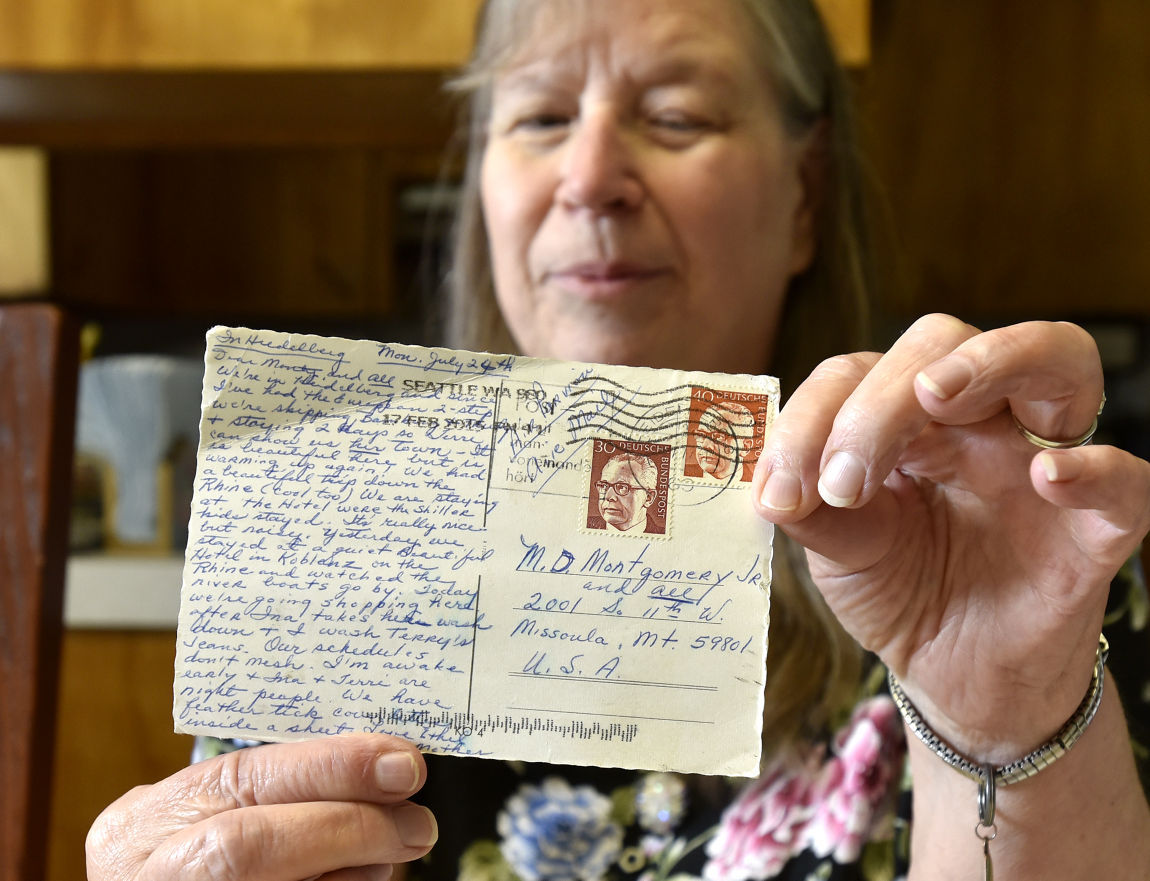 In Heidelberg Mon. July 24th
Dear Monty and all
We're in Heidelberg and
I've had the Europe in 2-step
we're skipping
+ staying 2 days so Terri
can show us her town - It
is beautiful here but is
warming up again. We had
a beautiful trip down the
Rhine (cool too) We are staying
at the Hotel were the Shiller
kids stayed. Its really nice
but noisy. Yesterday we
stayed at a quiet Beautiful
Hotel in Koblenz on the
Rhine and watched the
river boats go by. Today
we're going shopping here
after Ina takes her wash
down + I wash Terry's
Jeans. Our schedules
don't mesh. I'm awake
early + Ina + Terri are
night people. We have
feather tick
inside a sheet. Love
Mother
SEATTLE WA 980
17 FEB
30 DEUTSCHE BUNDESPOST
40 DEUTSCHE BUNDESPOST
M.D. Montgomery Jr.
and all
2001 So 11th W.
Missoula, Mt. 59801
U.S.A.